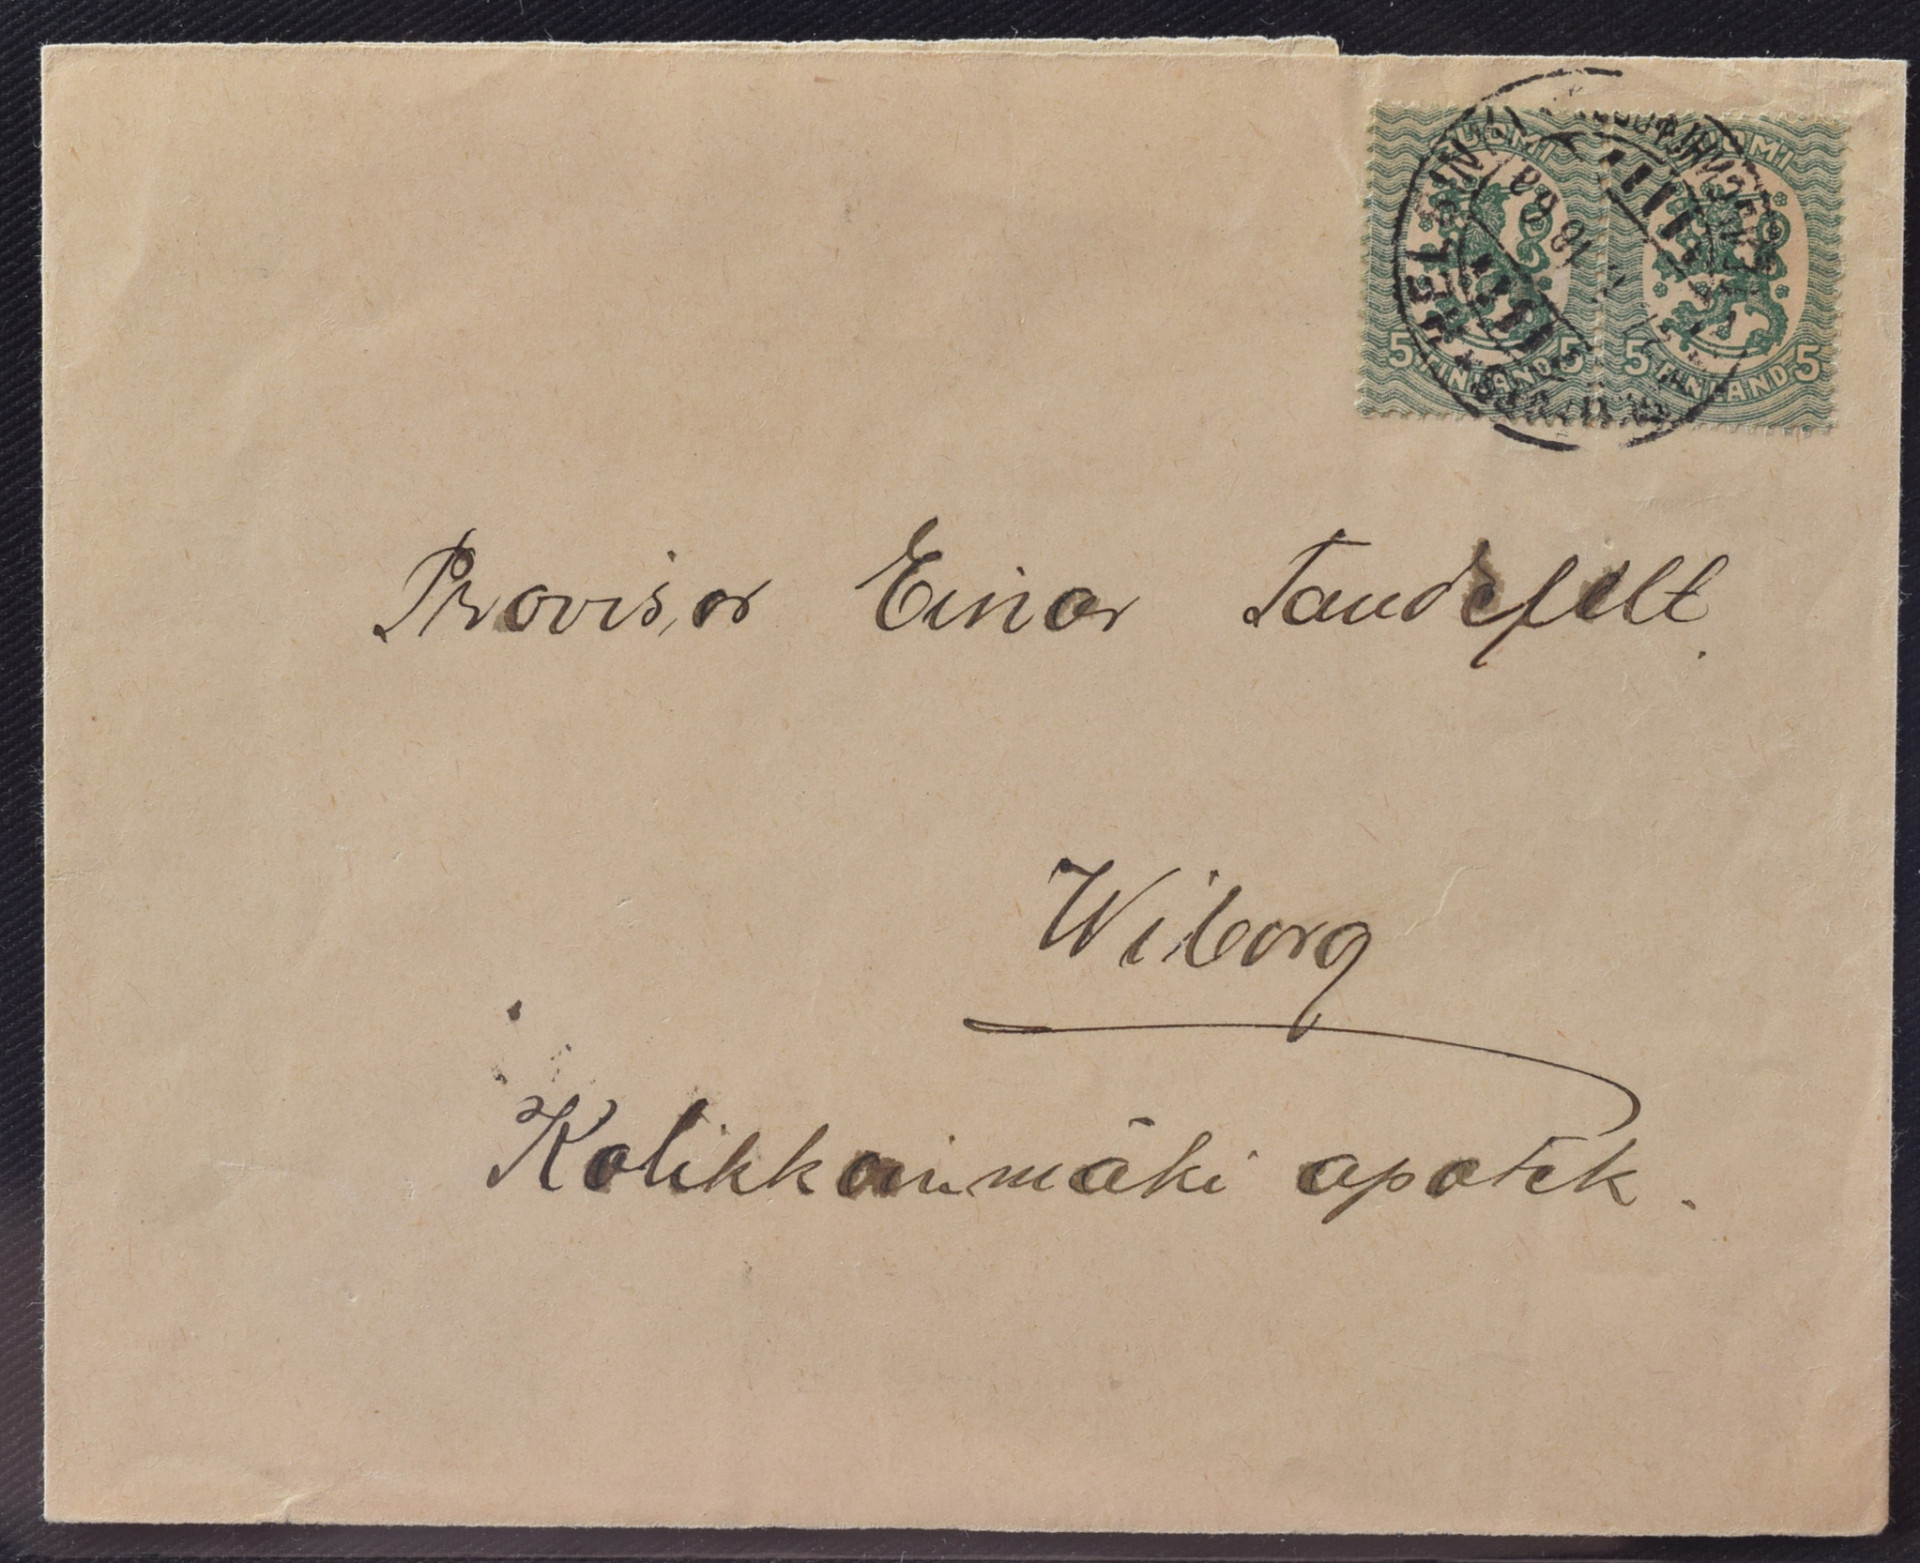 SUOMI SUOMI
HELSINKI
5 FINLAND 5 5 FINLAND 5
Provisor Einar Tandefelt.
Wiborg
Kolikkoinmäki apotek.